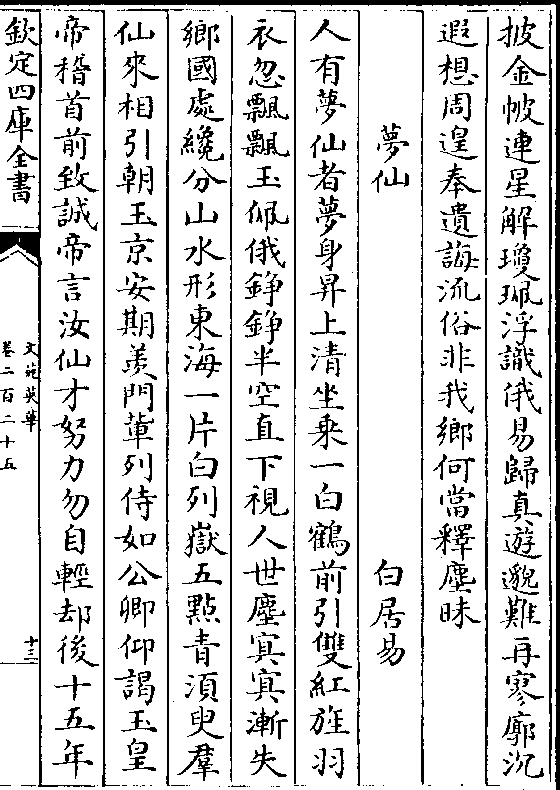 披金帔連星解瓊珮浮識俄易歸真遊邈難再寥廓沉
遐想周遑奉遺誨流俗非我鄉何當釋塵昧
夢仙　白居易
人有夢仙者夢身昇上清坐乗一白鶴前引雙紅旌羽
衣忽飄飄玉佩俄錚錚半空直下視人世塵寞寞漸失
鄉國處纔分山水形東海一片白列嶽五點青須臾羣
仙來相引朝玉京安期羨門輩列侍如公卿仰謁玉皇
帝稽首前致誠帝言汝仙才努力勿自輕却後十五年
欽定四庫全書
文苑英華
卷二百二十五
十三